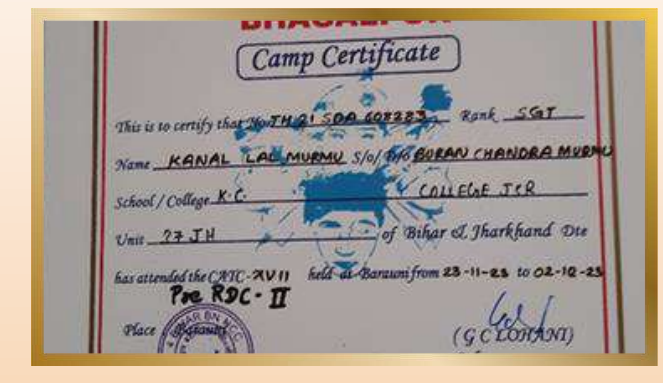 BHAGALPUR
Camp Certificate
This is to certify that No. JH 21 SDA 608283 Rank SGT
Name KANAL LAL MURMU S/o/ D/o BURAN CHANDRA MURMU
School / College K.C. COLLEGE JSR
Unit 37 JH of Bihar & Jharkhand Dte
has attended the CATC-XVII held at Barauni from 23-11-23 to 02-12-23
Pre RDC-II
Place Barauni
4 BIHAR BN NCC
(G C LOHANI)